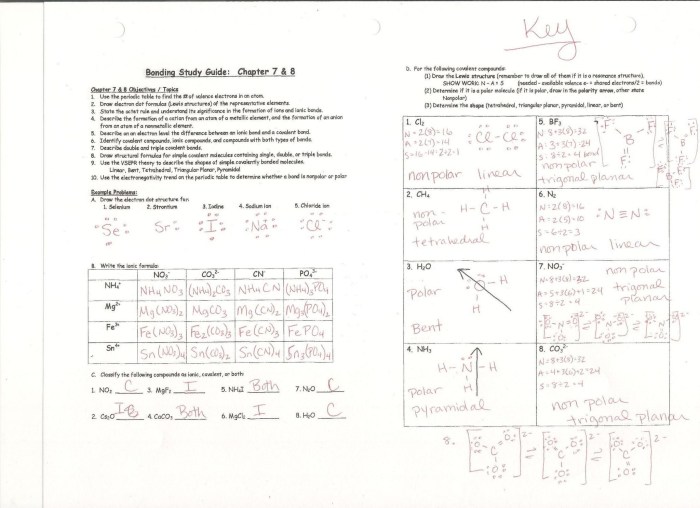 Key
Bonding Study Guide: Chapter 7 & 8
Chapter 7 & 8 Objectives / Topics
1. Use the periodic table to find the # of valence electrons in an atom.
2. Draw electron dot formulas (Lewis structures) of the representative elements.
3. State the octet rule and understand its significance in the formation of ions and ionic bonds.
4. Describe the formation of a cation from an atom of a metallic element, and the formation of an anion
from an atom of a nonmetallic element.
5. Describe on an electron level the difference between an ionic bond and a covalent bond.
6. Identify covalent compounds, ionic compounds, and compounds with both types of bonds.
7. Describe double and triple covalent bonds.
8. Draw structural formulas for simple covalent molecules containing single, double, or triple bonds.
9. Use the VSEPR theory to describe the shapes of simple covalently bonded molecules.
Linear, Bent, Tetrahedral, Triangular Planar, Pyramidal
10. Use the electronegativity trend on the periodic table to determine whether a bond is nonpolar or polar
Example Problems:
A. Draw the electron dot structure for:
1. Selenium 2. Strontium 3. Iodine 4. Sodium ion 5. Chloride ion
Se Sr I Na Cl
B. Write the ionic formula:
NO₃⁻ CO₃²⁻ CN⁻ PO₄³⁻
NH₄⁺ NH₄NO₃ (NH₄)₂CO₃ NH₄CN (NH₄)₃PO₄
Mg²⁺ Mg(NO₃)₂ MgCO₃ Mg(CN)₂ Mg₃(PO₄)₂
Fe³⁺ Fe(NO₃)₃ Fe₂(CO₃)₃ Fe(CN)₃ FePO₄
Sn⁴⁺ Sn(NO₃)₄ Sn(CO₃)₂ Sn(CN)₄ Sn₃(PO₄)₄
C. Classify the following compounds as ionic, covalent, or both:
1. NO₂ C 3. MgF₂ I 5. NH₄I Both 7. N₂O C
2. 4. CaCO₃ Both 6. MgCl₂ I 8. H₂O C
D. For the following covalent compounds:
(1) Draw the Lewis structure (remember to draw all of them if it is a resonance structure).
SHOW WORK: N - A = S (needed - available valence e- = shared electrons/2 = bonds)
(2) Determine if it is a polar molecule (if polar, draw in the polarity arrow, other state
Nonpolar)
(3) Determine the shape (tetrahedral, triangular planar, pyramidal, linear, or bent)
1. Cl₂
N = 2(8) = 16
A = 2(7) = 14
S = 16-14 = 2÷2=1
Cl - Cl
nonpolar linear
5. BF₃
N = 8+3(8)=32
A = 3+3(7)=24
S = 8÷2 = 4 bond
nonpolar
trigonal planar
2. CH₄
H
H - C - H
H
non-
polar
tetrahedral
6. N₂
N = 2(8)=16
A = 2(5)=10
S = 6÷2=3
:N≡N:
nonpolar linear
3. H₂O
O - H
H
Polar
Bent
7. NO₃⁻
N = 8+3(8)=32
A = 5+3(6)+1=24
S = 8÷2 = 4
nonpolar
trigonal
planar
4. NH₃
H - N - H
H
polar
pyramidal
8. CO₃²⁻
N = 8+3(8)=32
A = 4+3(6)+2=24
S = 8÷2=4
non polar
trigonal planar
8.